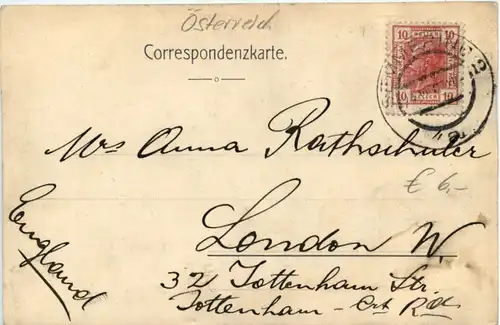 Österreich
Correspondenzkarte.
10 10
10 10
Mrs Anna Rathschüler
€ 6,-
London W.
England
32 Tottenham Str.
Tottenham - Crt Rd